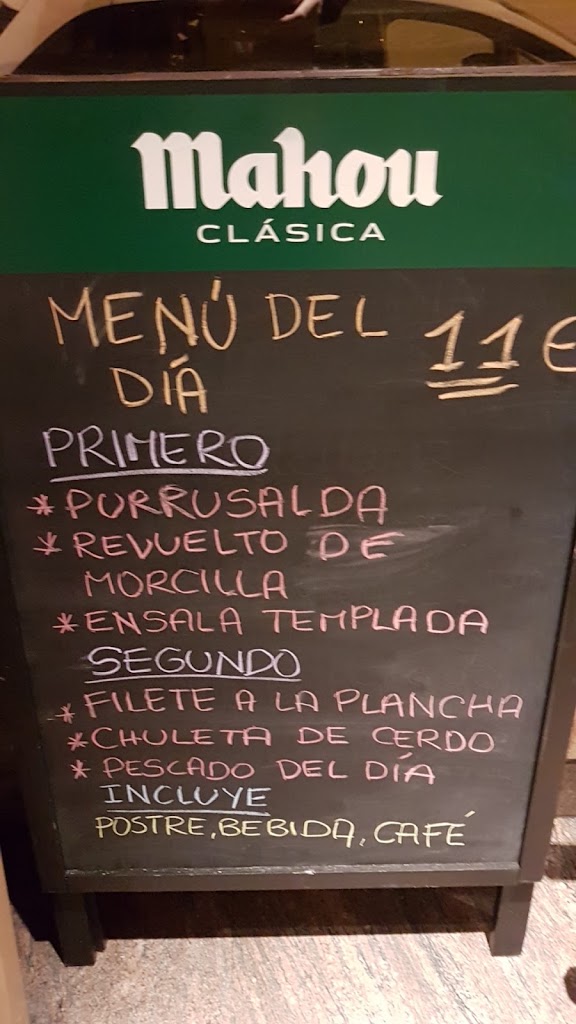 Mahou
CLÁSICA
MENÚ DEL 11€
DÍA
PRIMERO
* PURRUSALDA
* REVUELTO DE
MORCILLA
* ENSALA TEMPLADA
SEGUNDO
* FILETE A LA PLANCHA
* CHULETA DE CERDO
* PESCADO DEL DÍA
INCLUYE
POSTRE, BEBIDA, CAFÉ